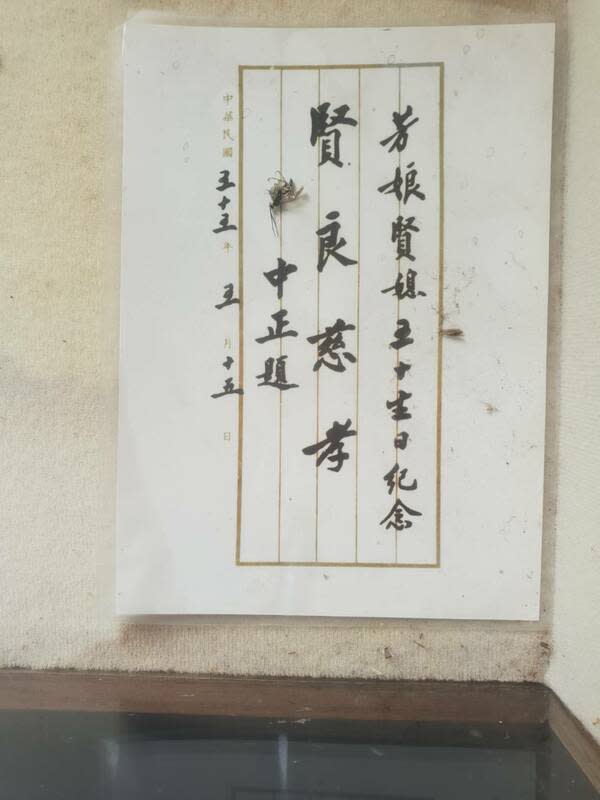 芳娘賢媳五十生日紀念
賢良慈孝
中正題
中華民國五十五年五月十五日